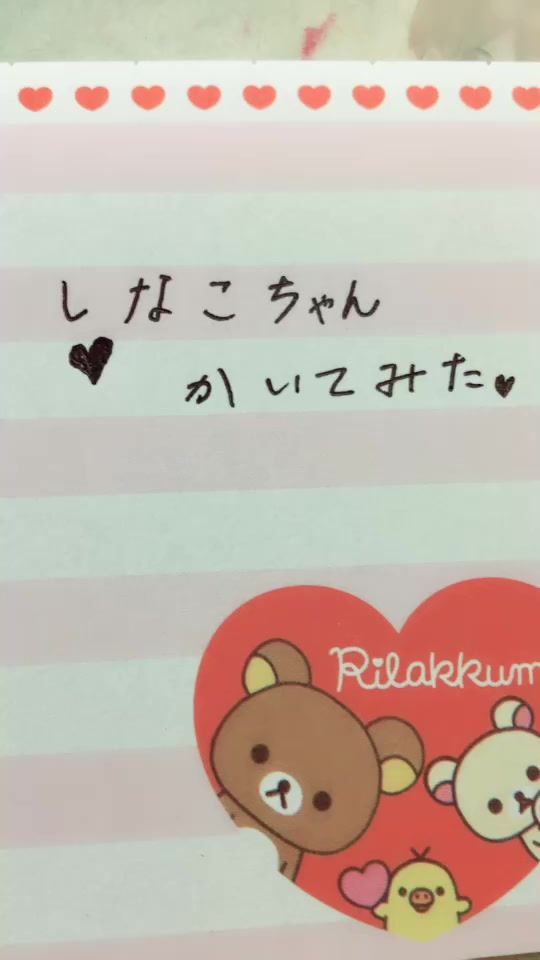 しなこちゃん
♥ かいてみた♥
Rilakkum